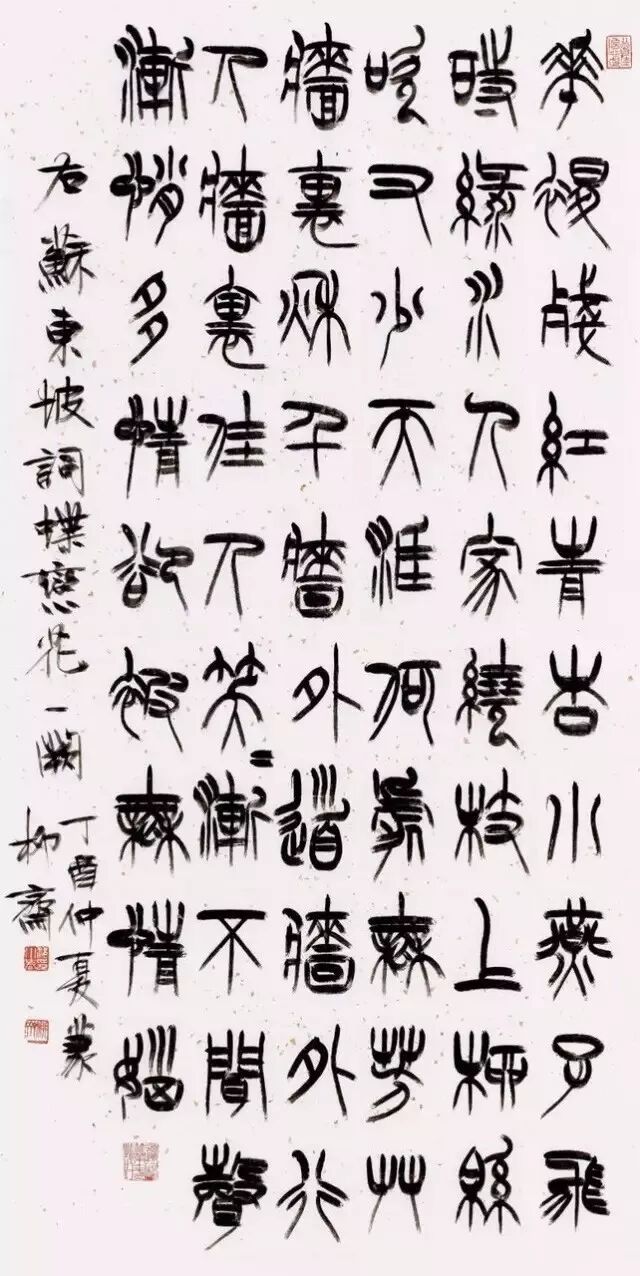 華褪殘紅青杏小燕子飛
時綠水人家繞枝上柳緜
吹又少天涯何處無芳艸
牆裏秋千牆外道牆外行
人牆裏佳人笑=漸不聞聲
漸悄多情卻被無情惱
右蘇東坡詞蝶戀花一闋
丁酉仲夏篆
柳齋